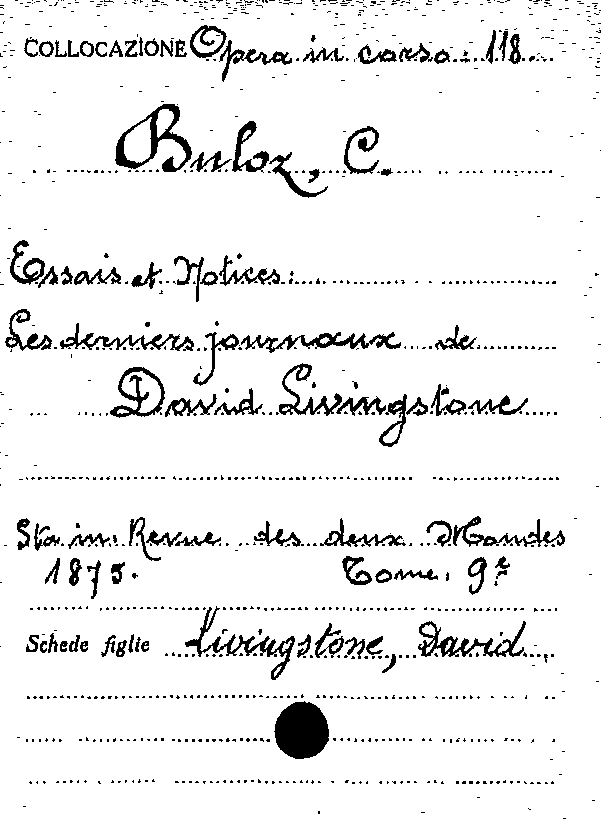 COLLOCAZIONE Opera in corso: 118.
Buloz, C.
Essais et Notices:
Les derniers journaux de
David Livingstone
Sta in: Revue des deux Mondes
1875. Tome. 9e
Schede figlie Livingstone, David